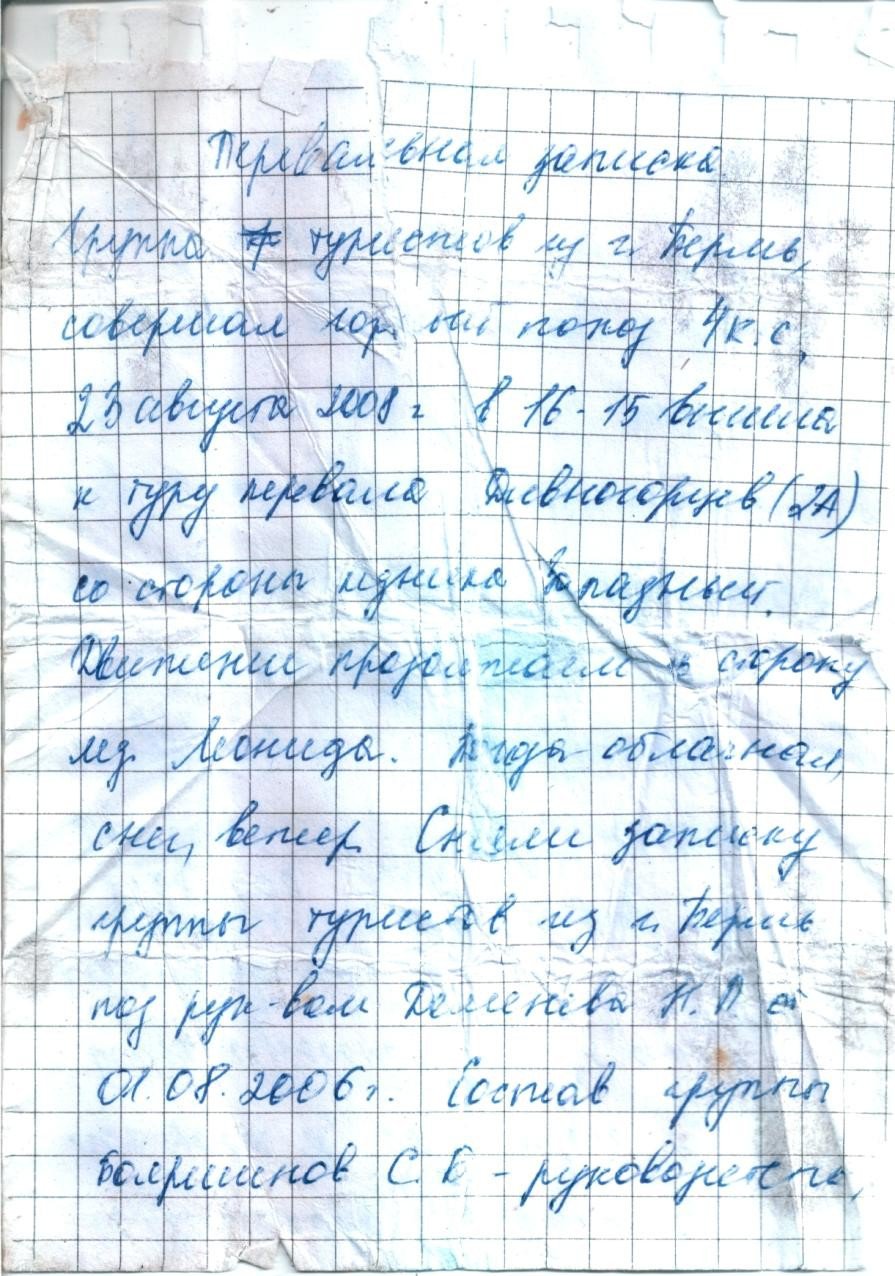 Перевальная записка
Группа туристов из г. Пермь,
совершая горный поход 4 к.с.,
23 августа 2008 г. в 16-15 вышла
к туру перевала Дивногорцев (2А)
со стороны ледника Западный.
Движение продолжаем в сторону
лед. Леонида. Погода облачная,
снег, ветер. Сняли записку
группы туристов из г. Пермь
под рук-вом Деменева Н.П от
01.08.2006 г. Состав группы
Бояршинов С.В - руководитель,